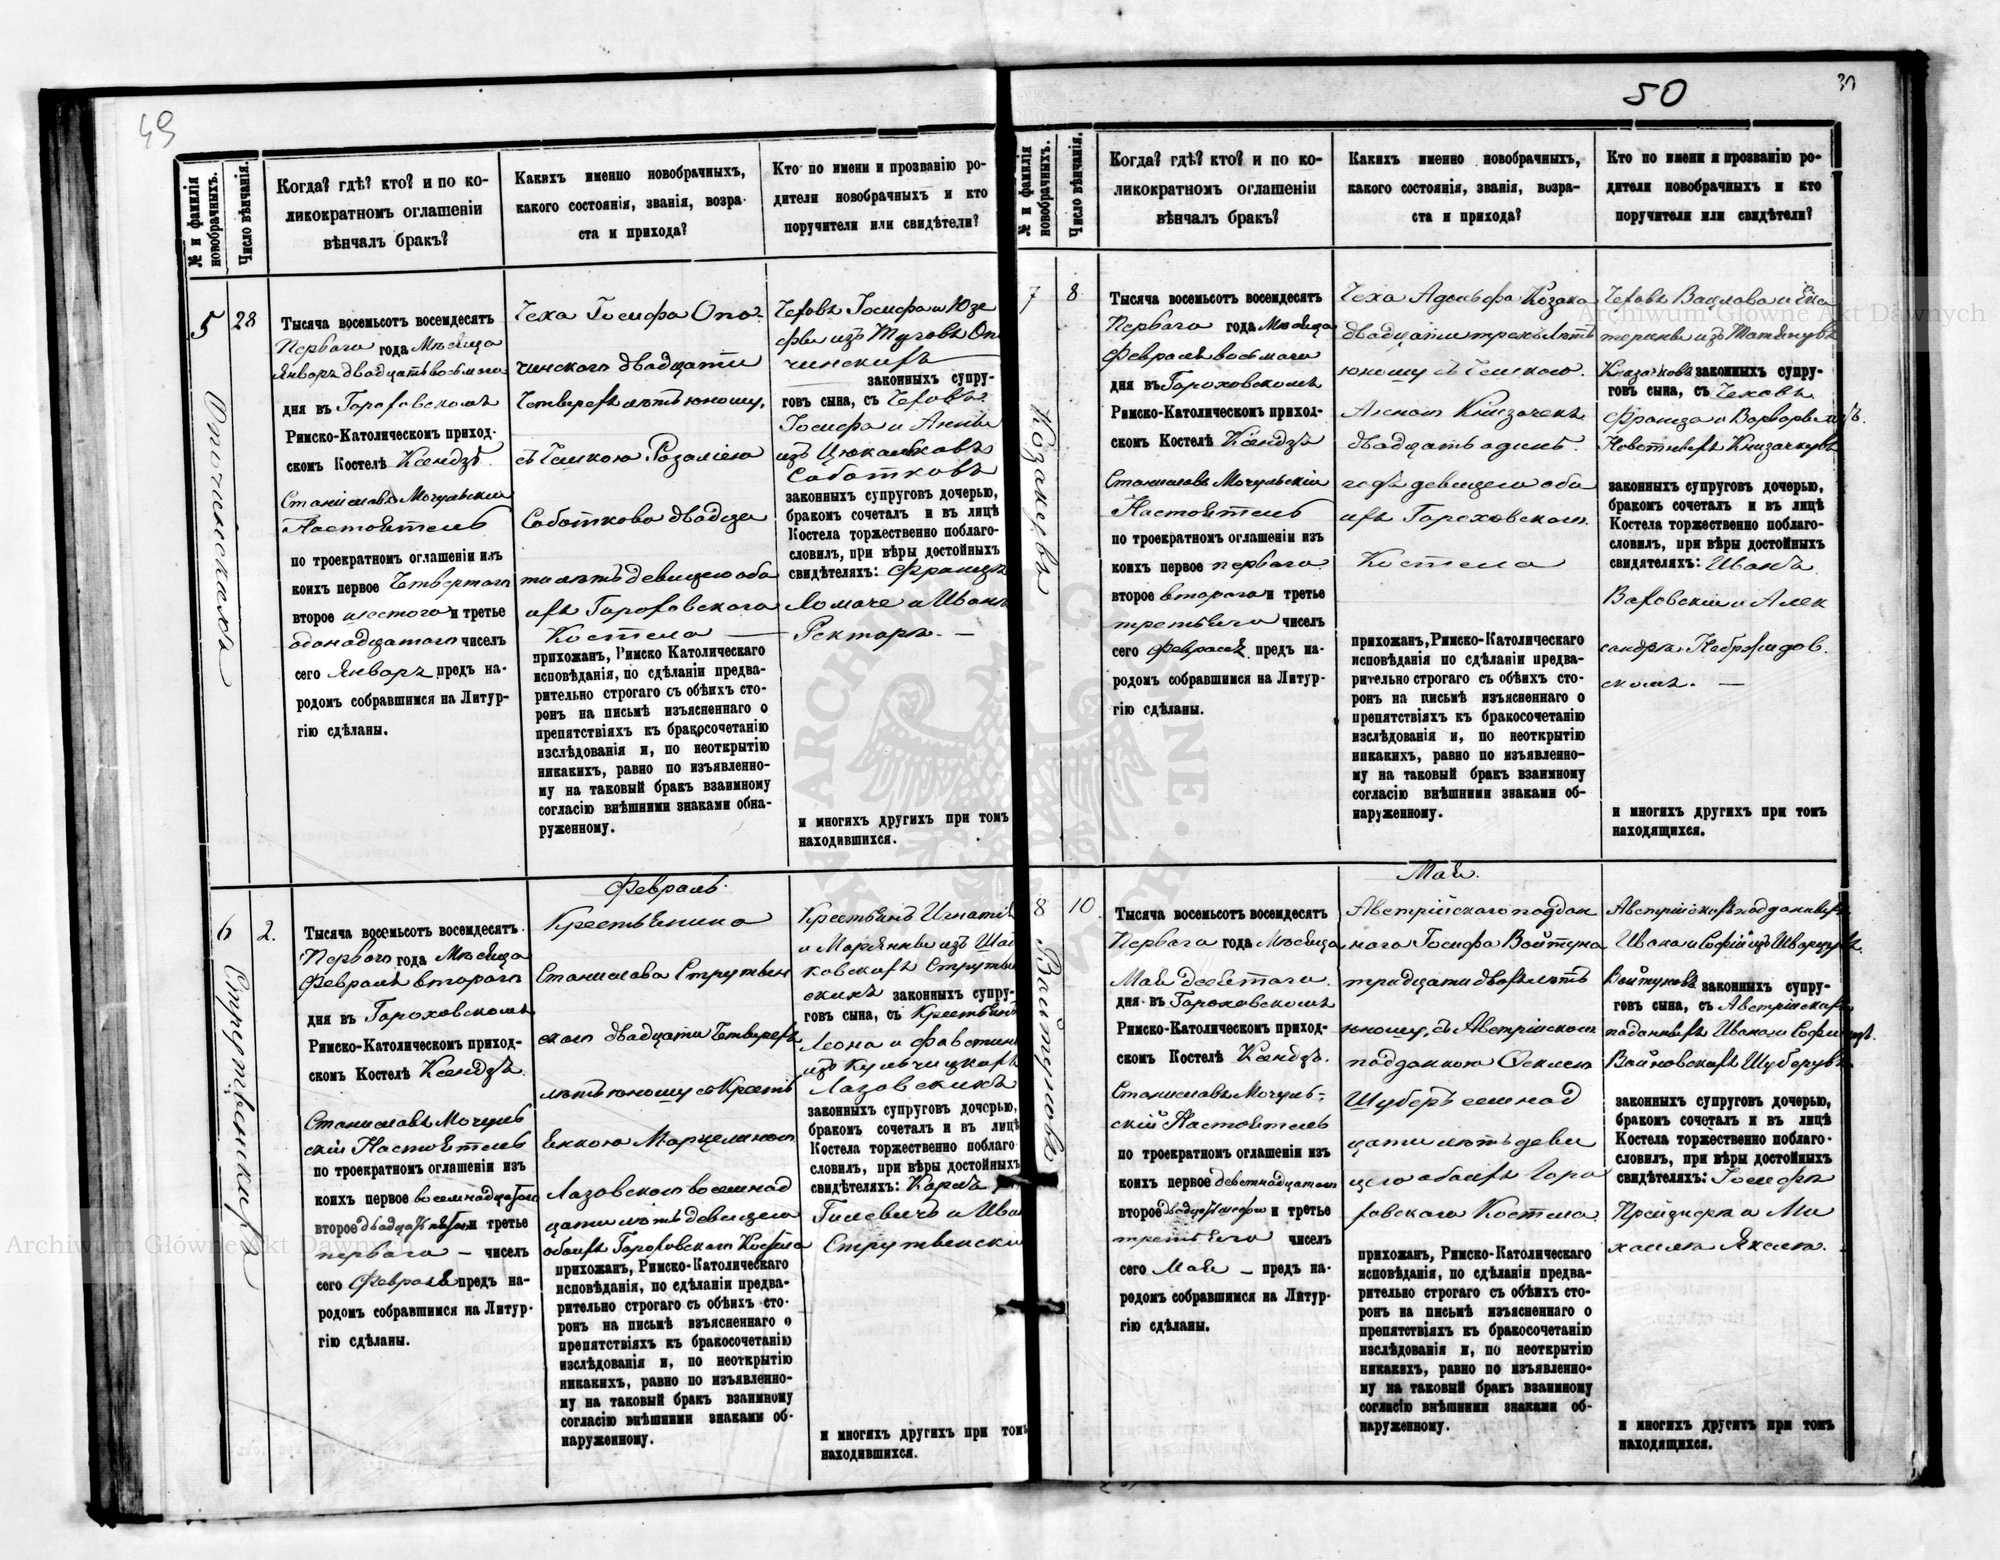 49
№ и фамилія новобрачныхъ.
Число вѣнчанія.
Когда? гдѣ? кто? и по ко-
ликократномъ оглашеніи
вѣнчалъ бракъ?
Какихъ именно новобрачныхъ,
какого состоянія, званія, возра-
ста и прихода?
Кто по имени и прозванію ро-
дители новобрачныхъ и кто
поручители или свидѣтели?
5
28
Тысяча восемьсотъ восемдесятъ
Перваго года Мѣсяца
Января двадцать восьмаго
дня въ Гороховскомъ
Римско-Католическомъ приход-
скомъ Костелѣ Ксендзъ
Станиславъ Мочульскій
Настоятель
по троекратномъ оглашеніи изъ
коихъ первое Четвертаго
второе шестого и третье
одонадцатаго чиселъ
сего Января предъ на-
родомъ собравшимся на Литур-
гію сдѣланы.
Чеха Іосифа Опо-
чинскаго двадцати
Четырехъ лѣтъ юношу,
съ Чешкою Розаліею
Сабаткова двадца
ти лѣтъ девицею оба
ихъ Гороховскаго
Костела —
прихожан, Римско Католическаго
исповѣданія, по сдѣланіи предва-
рительно строгаго съ обѣихъ сто-
ронъ на письмѣ изъясненнаго о
препятствіяхъ къ бракосочетанію
изслѣдованія и, по неоткрытію
никакихъ, равно по изъявленно-
му на таковый бракъ взаимному
согласію внѣшними знаками обна-
руженному.
Чеховъ Іосифа и Юзе
фы изъ Туговъ Опо
чинскихъ
законныхъ супру-
говъ сына, съ Чеховъ
Іосифа и Анны
изъ
Сабатковъ
законныхъ супруговъ дочерью,
бракомъ сочеталъ и въ лицѣ
Костела торжественно поблаго-
словилъ, при вѣры достойныхъ
свидѣтеляхъ: Францъ
Ломаче и Иванъ
Ректоръ. —
и многихъ другихъ при томъ
находившихся.
Февраль.
6
2.
Тысяча восемьсотъ восемдесятъ
Перваго года Мѣсяца
Февраля втораго
дня въ Гороховскомъ
Римско-Католическомъ приход-
скомъ Костелѣ Ксендзъ
Станиславъ Мочуль
скій Настоятель
по троекратномъ оглашеніи изъ
коихъ первое восемнадцатого
второе и третье
перваго — чиселъ
сего Февраля предъ на-
родомъ собравшимся на Литур-
гію сдѣланы.
Крестьянина
Станислава Струтын
скаго двадцати Четырехъ
лѣтъ юношу съ Кресть
янкою Марцелиною
Лазовскою восемнад
цати лѣтъ девицею
обоихъ Гороховскаго Костела
прихожан, Римско-Католическаго
исповѣданія, по сдѣланіи предва-
рительно строгаго съ обѣихъ сто-
ронъ на письмѣ изъясненнаго о
препятствіяхъ къ бракосочетанію
изслѣдованія и, по неоткрытію
никакихъ, равно по изъявленно-
му на таковый бракъ взаимному
согласію внѣшними знаками об-
наруженному.
Крестьянъ Игнатія
и Маріянны изъ
законныхъ супру-
говъ сына, съ Крестьянъ
Леона и Фавстины
изъ Кульчицкихъ
Лазовскихъ
законныхъ супруговъ дочерью,
бракомъ сочеталъ и въ лицѣ
Костела торжественно поблаго-
словилъ, при вѣры достойныхъ
свидѣтеляхъ:
и многихъ другихъ при томъ
находившихся.
50
30
№ и фамилія новобрачныхъ.
Число вѣнчанія.
Когда? гдѣ? кто? и по ко-
ликократномъ оглашеніи
вѣнчалъ бракъ?
Какихъ именно новобрачныхъ,
какого состоянія, званія, возра-
ста и прихода?
Кто по имени и прозванію ро-
дители новобрачныхъ и кто
поручители или свидѣтели?
7
8
Тысяча восемьсотъ восемдесятъ
Перваго года Мѣсяца
Февраля восьмаго
дня въ Гороховскомъ
Римско-Католическомъ приход-
скомъ Костелѣ Ксендзъ
Станиславъ Мочульскій
Настоятель
по троекратномъ оглашеніи изъ
коихъ первое перваго
второе втораго и третье
третьяго чиселъ
сего Февраля предъ на-
родомъ собравшимся на Литур-
гію сдѣланы.
Чеха Адольфа Козака
двадцати трехъ лѣтъ
юношу съ Чешкою
Анною Княzачекъ
двадцать одинъ
годъ девицею обо
ихъ Гороховскаго
Костела
прихожан, Римско-Католическаго
исповѣданія по сдѣланіи предва-
рительно строгаго съ обѣихъ сто-
ронъ на письмѣ изъясненнаго о
препятствіяхъ къ бракосочетанію
изслѣдованія и, по неоткрытію
никакихъ, равно по изъявленно-
му на таковый бракъ взаимному
согласію внѣшними знаками об-
наруженному.
Чеховъ Вацлава и Ека
терины изъ
законныхъ супру-
говъ сына, съ Чеховъ
Франца и Варвары изъ
законныхъ супруговъ дочерью,
бракомъ сочеталъ и въ лицѣ
Костела торжественно поблаго-
словилъ, при вѣры достойныхъ
свидятеляхъ: Иванъ
Варовскій и Алек
сандръ
скомъ. —
и многихъ другихъ при томъ
находящихся.
Май.
8
10
Войтуновъ
Тысяча восемьсотъ восемдесятъ
Перваго года Мѣсяца
Мая десятаго
дня въ Гороховскомъ
Римско-Католическомъ приход-
скомъ Костелѣ Ксендзъ
Станиславъ Мочуль-
скій Настоятель
по троекратномъ оглашеніи изъ
коихъ первое девятнадцатаго
второе и третье
третьяго чиселъ
сего Мая — предъ на-
родомъ собравшимся на Литур-
гію сдѣланы.
Австрійскаго поддан
наго Іосифа Войтуна
тридцати двухъ лѣтъ
юношу, съ Австрійскою
подданкою
Шуберъ семнад
цати лѣтъ деви
цею обоихъ Горо
ховскаго Костела
прихожан, Римско-Католическаго
исповѣданія, по сдѣланіи предва-
рительно строгаго съ обѣихъ сто-
ронъ на письмѣ изъясненнаго о
препятствіяхъ къ бракосочетанію
изслѣдованія и, по неоткрытію
никакихъ, равно по изъявленно-
му на таковый бракъ взаимному
согласію внѣшними знаками об-
наруженному.
Австрійскихъ подданныхъ
Ивана и Софіи изъ
Войтуновъ законныхъ супру-
говъ сына, съ Австрійскихъ
поданныхъ Ивана и Софіи изъ
Войновскихъ Шуберувъ
законныхъ супруговъ дочерью,
бракомъ сочеталъ и въ лицѣ
Костела торжественно поблаго-
словилъ, при вѣры достойныхъ
свидѣтеляхъ: Іосифъ
Прейзнеръ и Ми
хаилъ
и многихъ другихъ при томъ
находящихся.
Archiwum Główne Akt Dawnych
Archiwum Główne Akt Dawnych